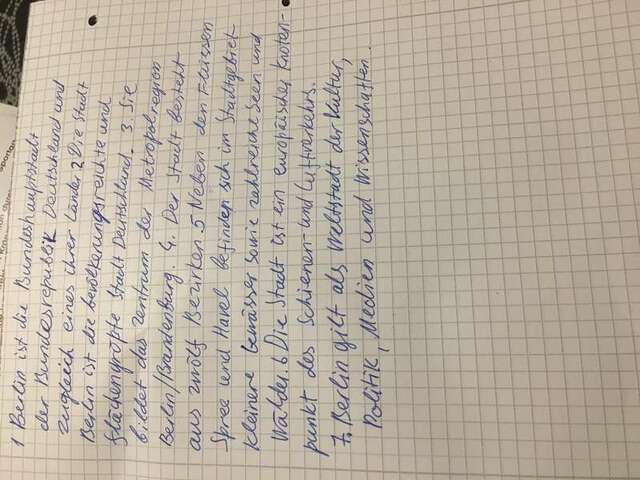 1 Berlin ist die Bundeshauptstadt
der Bundesrepublik Deutschland und
zugleich eines ihrer Länder 2 Die Stadt
Berlin ist die bevölkerungsreichte und
flächengröpte Stadt Deutschland. 3. Sie
bildet das Zentrum der Metropolregion
Berlin/Brandenburg. 4. Der Stadt besteht
aus zwölf Bezirken. 5 Neben den Flüssen
Spree und Havel befinden sich im Stadtgebiet
kleinere Gewässer sowie zahlreiche Seen und
Wälder. 6 Die Stadt ist ein europäischer Knoten-
punkt des Schienen- und Luftverkehrs.
7. Berlin gilt als Weltstadt der Kultur,
Politik, Medien und Wissenschaften.